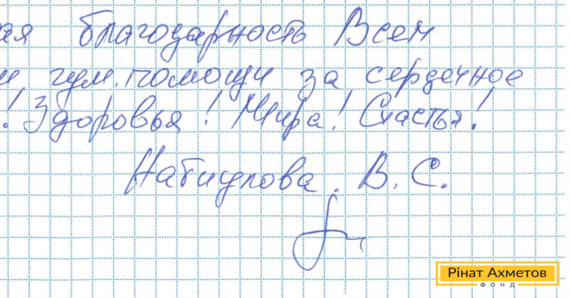 ая благодарность Всем
и гум. помощи за сердечное
! Здоровья! Мира! Счастья!
Набиулова. В. С.
Рінат Ахметов
ФОНД